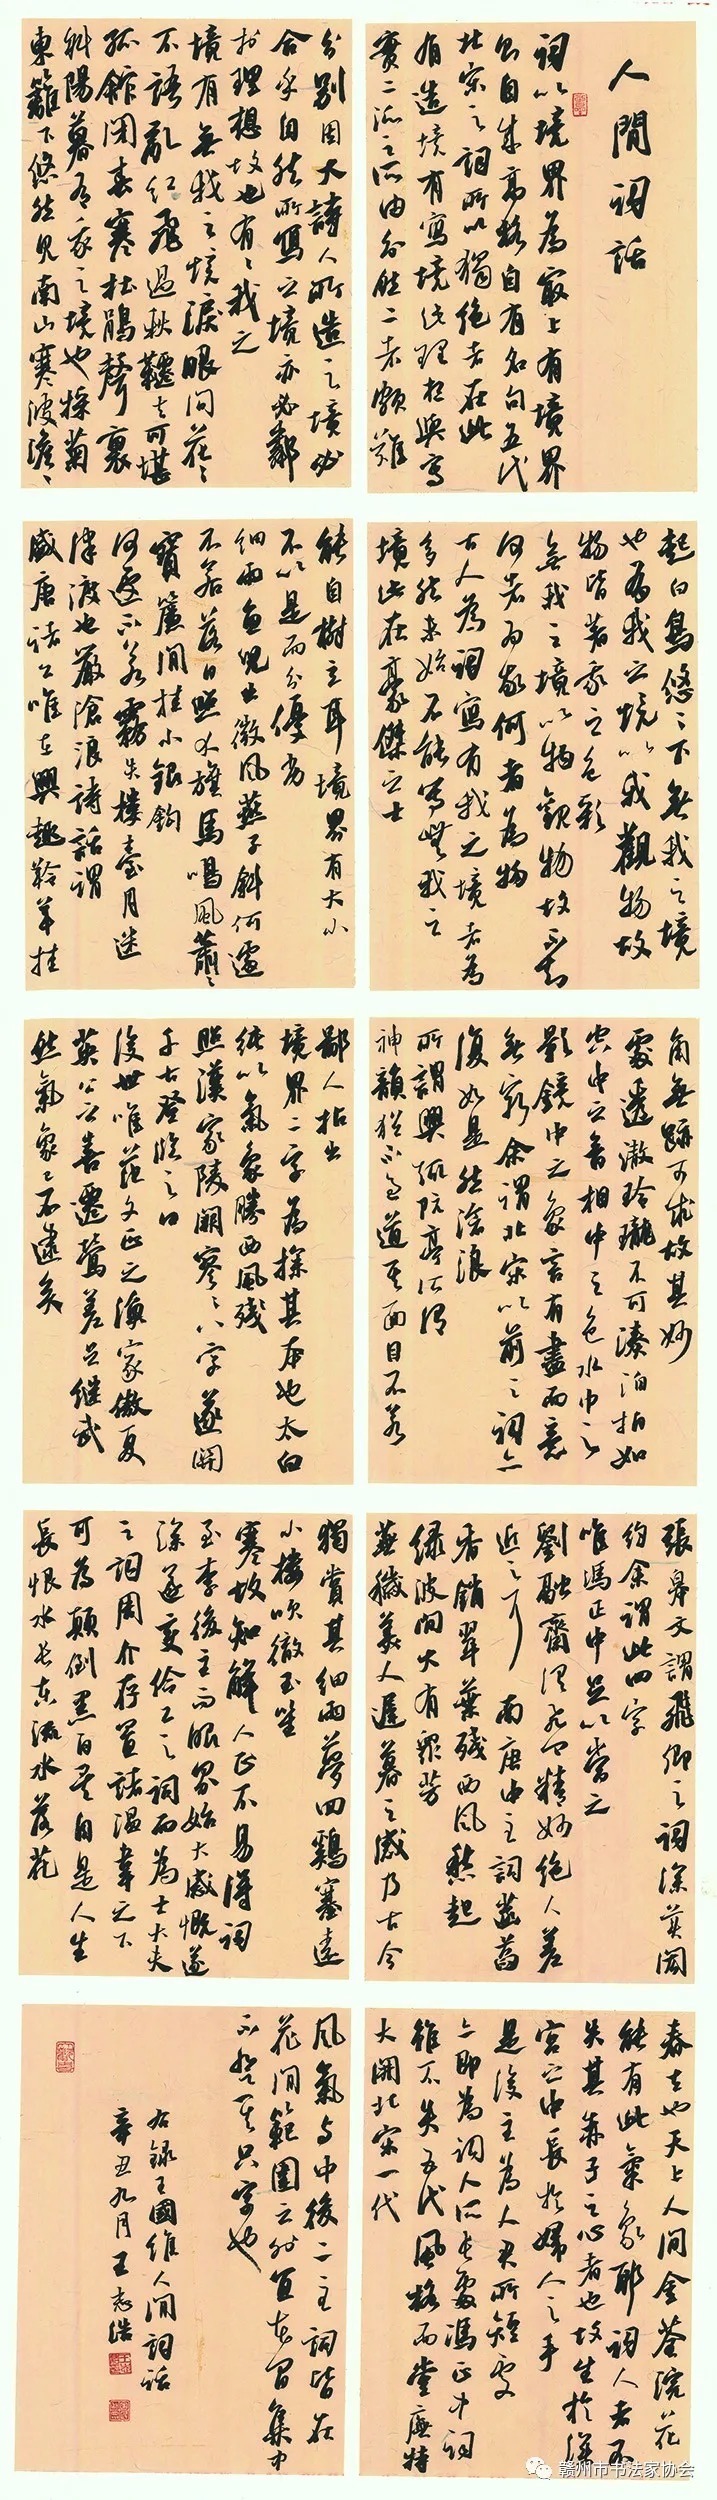 人間詞話
詞以境界為最上有境界
則自成高格自有名句五代
北宋之詞所以獨絕者在此
有造境有寫境此理想與寫
實二派之所由分然二者頗難
分別因大詩人所造之境必
合乎自然所寫之境亦必鄰
於理想故也有有我之
境有無我之境淚眼問花花
不語亂紅飛過秋韆去可堪
孤館閉春寒杜鵑聲裏
斜陽暮有我之境也採菊
東籬下悠然見南山寒波澹澹
起白鳥悠悠下無我之境
也有我之境以我觀物故
物皆著我之色彩
無我之境以物觀物故不知
何者為我何者為物
古人為詞寫有我之境者為
多然未始不能寫無我之
境此在豪傑之士
能自樹立耳境界有大小
不以是而分優劣
細雨魚兒出微風燕子斜何遽
不若落日照大旗馬鳴風蕭蕭
寶簾閒挂小銀鉤
何遽不若霧失樓臺月迷
津渡也嚴滄浪詩話謂
盛唐諸公唯在興趣羚羊挂
角無跡可求故其妙
處透澈玲瓏不可湊泊如
空中之音相中之色水中之
影鏡中之象言有盡而意
無窮余謂北宋以前之詞亦
復如是然滄浪
所謂興趣阮亭所謂
神韻猶不過道其面目不若
鄙人拈出
境界二字為探其本也太白
純以氣象勝西風殘
照漢家陵闕寥寥八字遂關
千古登臨之口
後世唯范文正之漁家傲夏
英公之喜遷鶯差足繼武
然氣象已不逮矣
張皋文謂飛卿之詞深美閎
約余謂此四字
唯馮正中足以當之
劉融齋謂飛卿精妙絕人差
近之耳 南唐中主詞菡萏
香銷翠葉殘西風愁起
綠波間大有眾芳
蕪穢美人遲暮之感乃古今
獨賞其細雨夢回鷄塞遠
小樓吹徹玉笙
寒故知解人正不易得詞
至李後主而眼界始大感慨遂
深遂變伶工之詞而為士大夫
之詞周介存置諸溫韋之下
可為顛倒黑白矣自是人生
長恨水長東流水落花
春去也天上人間金荃浣花
能有此氣象耶詞人者不
失其赤子之心者也故生於深
宮之中長於婦人之手
是後主為人君所短處
亦即為詞人所長處馮正中詞
雖不失五代風格而堂廡特
大開北宋一代
風氣與中後二主詞皆在
花間範圍之外宜花間集中
不登其隻字也
右錄王國維人間詞話
辛丑九月王志浩
赣州市书法家协会